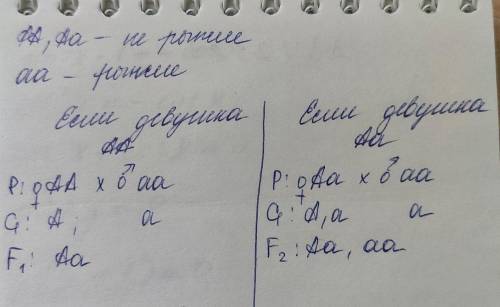 AA, Aa – не рыжие
аа – рыжие
Если девушка
AA
P: ♀AA x ♂ aa
G: A; a
F₁: Aa
Если девушка
Aa
P: ♀Aa x ♂ aa
G: A, a a
F₂: Aa, aa